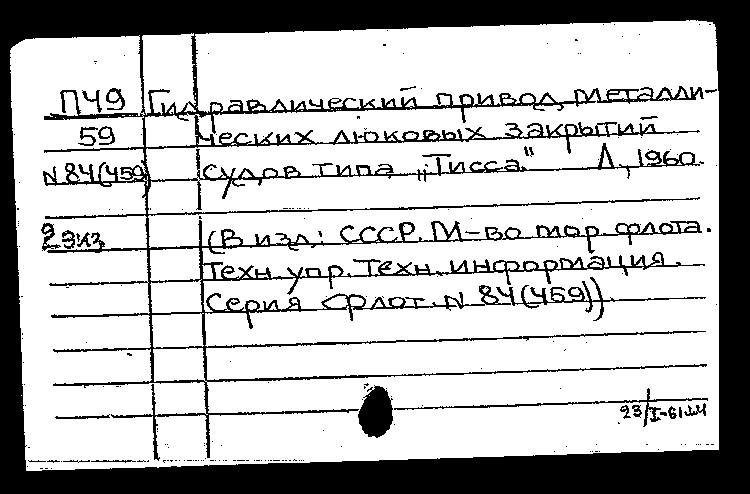 ПЧ9 Гидравлический привод металли-
59 ческих люковых закрытий
N 84(459) судов типа „Тисса." Л., 1960.
2 экз (В изд: СССР. М-во мор. флота.
Техн. упр. Техн. информация.
Серия флот. N 84(459)).
23/I-61